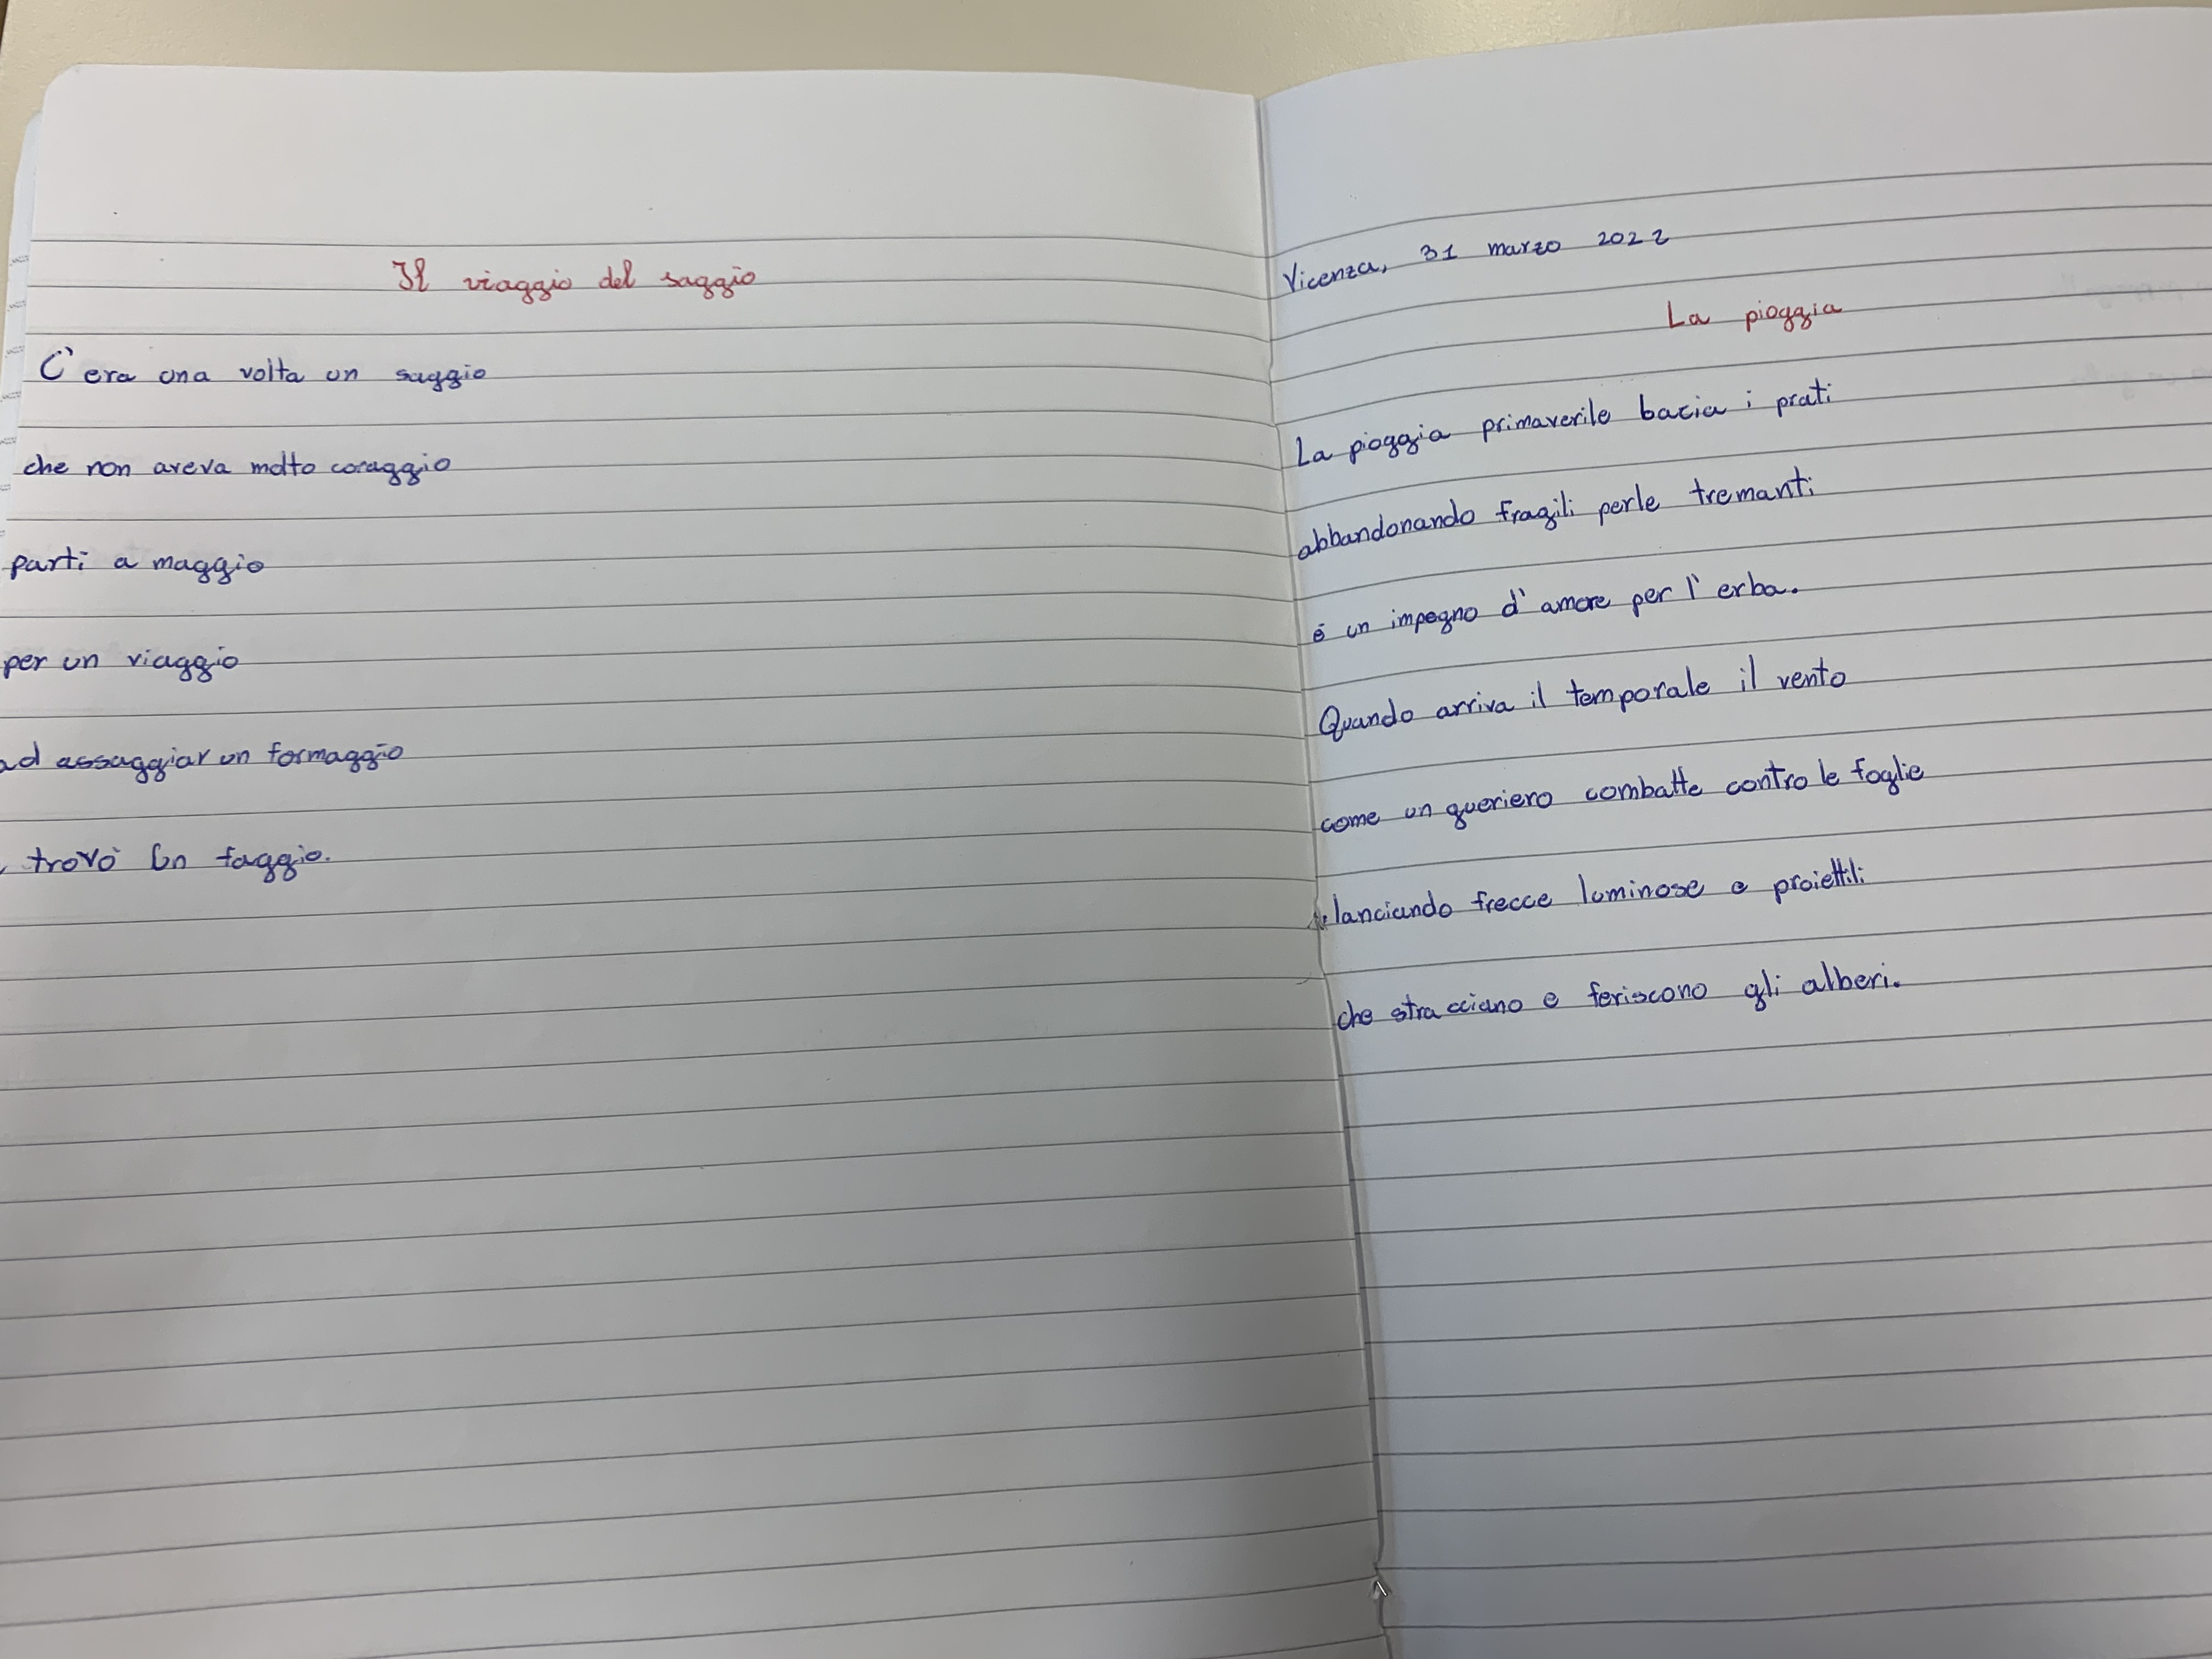 Il viaggio del saggio
C'era una volta un saggio
che non aveva molto coraggio
parti a maggio
per un viaggio
ad assaggiar un formaggio
trovò un faggio.
Vicenza, 31 marzo 2022
La pioggia
La pioggia primaverile bacia i prati
abbandonando fragili perle tremanti
é un impegno d'amore per l'erba.
Quando arriva il temporale il vento
come un gueriero combatte contro le foglie
lanciando frecce luminose e proiettili
che stracciano e feriscono gli alberi.